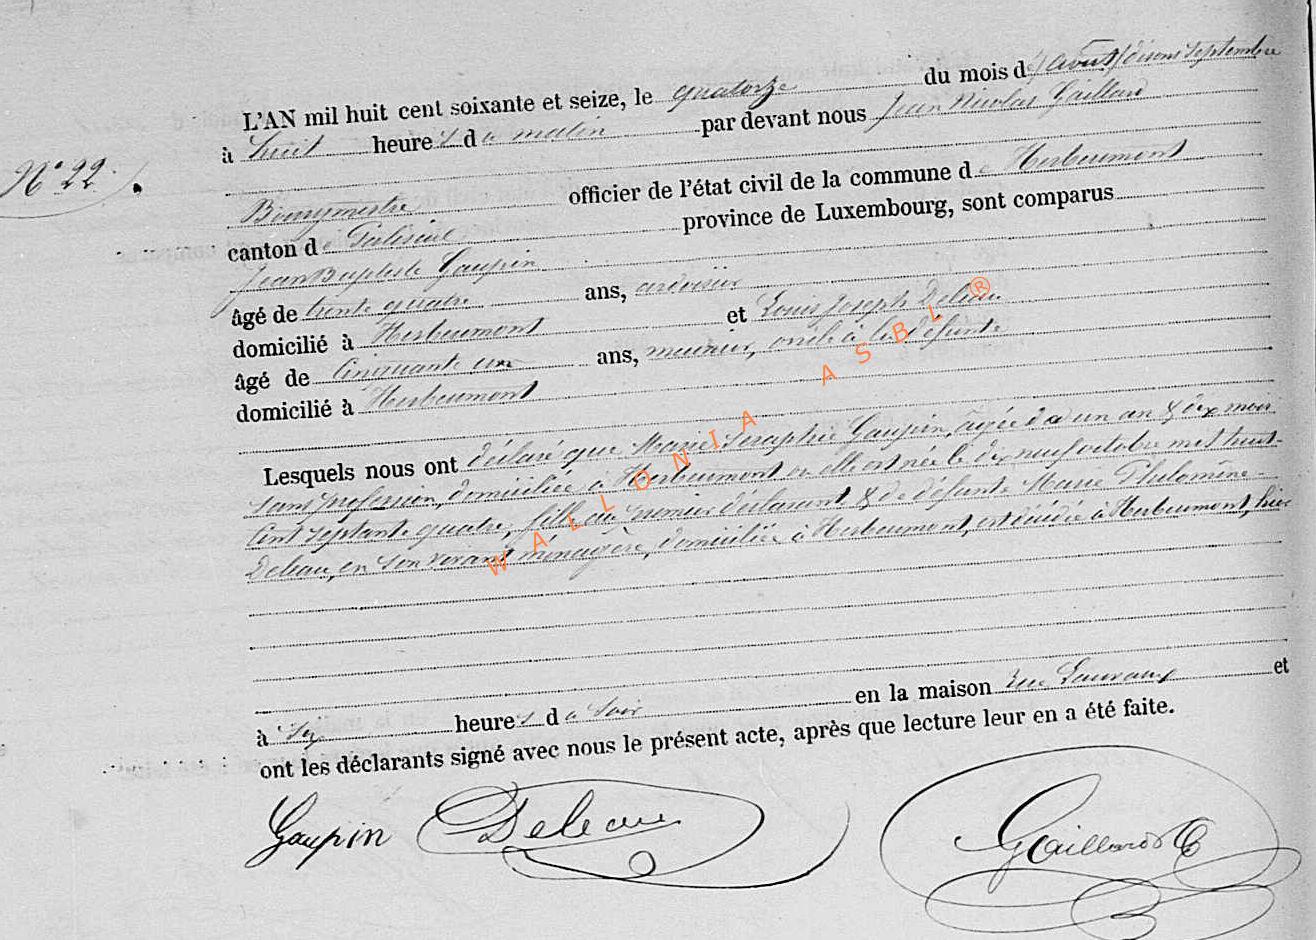 L'AN mil huit cent soixante et seize, le quatorze du mois d'août/disons septembre
à huit heures du matin par devant nous Jean Nicolas Gaillard
N° 22.
Bourgmestre officier de l'état civil de la commune de Herbeumont
canton de Paliseul province de Luxembourg, sont comparus
Jean Baptiste Gaupin
âgé de trente quatre ans, ardoisier
domicilié à Herbeumont et Louis Joseph Deleau
âgé de Cinquante un ans, meunier, oncle à la défunte
domicilié à Herbeumont
Lesquels nous ont déclaré que Marie Seraphie Gaupin, âgée d'un an & dix mois
sans profession, domiciliée à Herbeumont où elle est née le dix neuf octobre mil huit-
Cent septante quatre, fille du premier déclarant & de défunte Marie Philomène
Deleau, en son vivant ménagère, domiciliée à Herbeumont, est décédée à Herbeumont, hier
à six heures du soir en la maison rue et
ont les déclarants signé avec nous le présent acte, après que lecture leur en a été faite.
Gaupin Deleau Gaillard
WALLONIA ASBL ®